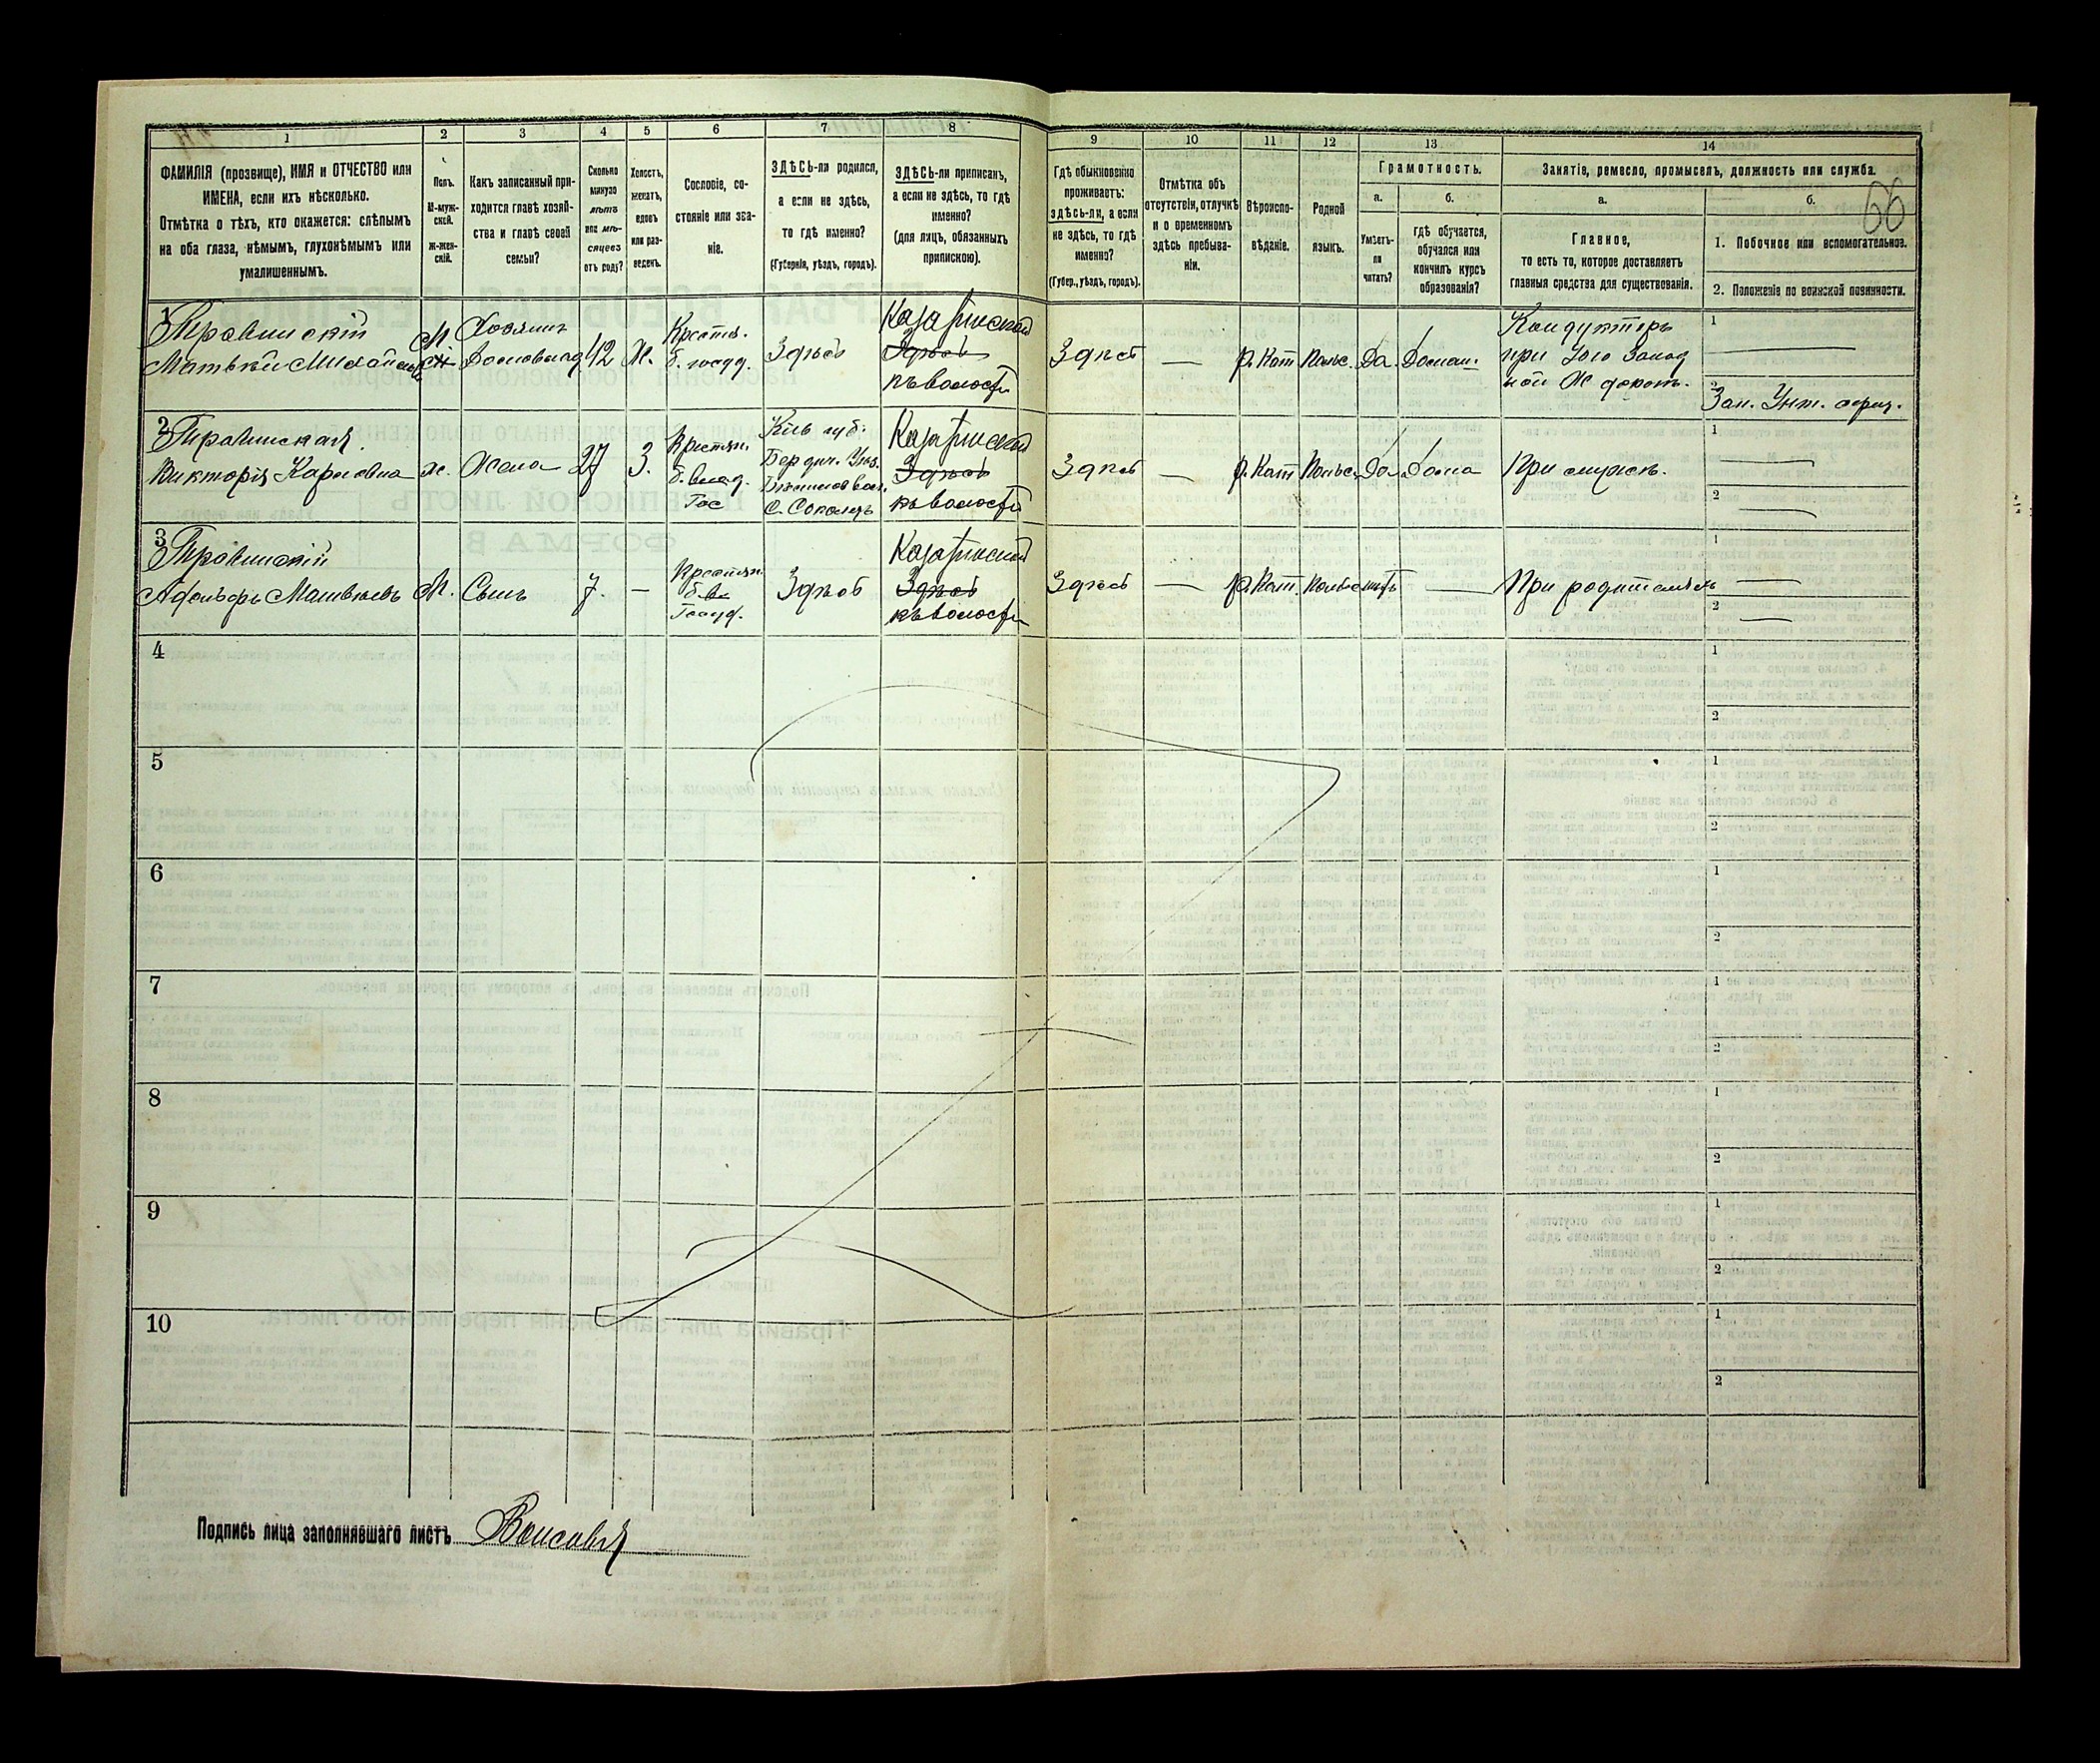 1 2 3 4 5 6 7 8 9 10 11 12 13 14
ФАМИЛІЯ (прозвище), ИМЯ и ОТЧЕСТВО или
ИМЕНА, если ихъ нѣсколько.
Отмѣтка о тѣхъ, кто окажется: слѣпымъ
на оба глаза, нѣмымъ, глухонѣмымъ или
умалишеннымъ.
Полъ.
М-муж-
ской.
Ж-жен-
скій.
Какъ записанный при-
ходится главѣ хозяй-
ства и главѣ своей
семьи?
Сколько
минуло
лѣтъ
или мѣ-
сяцевъ
отъ роду?
Холостъ,
женатъ,
вдовъ
или раз-
веденъ.
Сословіе, со-
стояніе или зва-
ніе.
ЗДѢСЬ-ли родился,
а если не здѣсь,
то гдѣ именно?
(Губернія, уѣздъ, городъ).
ЗДѢСЬ-ли приписанъ,
а если не здѣсь, то гдѣ
именно?
(для лицъ, обязанныхъ
припискою).
Гдѣ обыкновенно
проживаетъ:
здѣсь-ли, а если
не здѣсь, то гдѣ
именно?
(Губер., уѣздъ, городъ).
Отмѣтка объ
отсутствіи, отлучкѣ
и о временномъ
здѣсь пребыва-
ніи.
Вѣроиспо-
вѣданіе.
Родной
языкъ.
Грамотность.
а.
Умѣетъ-
ли
читать?
б.
гдѣ обучается,
обучался или
кончилъ курсъ
образованія?
Занятіе, ремесло, промыселъ, должность или служба.
а.
Главное,
то есть то, которое доставляетъ
главныя средства для существованія.
б.
66
1. Побочное или вспомогательное.
2. Положеніе по воинской повинности.
1
Матвѣй Михайловъ
М
Хозяинъ
42
Ж.
Крестья.
б. госуд.
Здѣсь
Здѣсь
къ волости
Здѣсь
—
р. Кат
Польс.
Да.
Домаш.
Кондукторъ
при Юго Запад
ной Ж дорогѣ.
1
2
Зап. Унт. офиц.
2
Викторія Карловна
ж.
Жена
27
З.
Крестьян.
Кіев губ.
Бердич. Уѣз.
Здѣсь
къ волости
Здѣсь
—
р. Кат
Польс.
Да
Дома
При мужѣ.
1
2
3
Адольфъ Матвѣевъ
М.
Сынъ
7.
—
Крестьян.
Госуд.
Здѣсь
Здѣсь
къ волости
Здѣсь
—
р. Кат.
Польс
нѣтъ
—
При родителяхъ
1
2
4
1
2
5
1
2
6
1
2
7
1
2
8
1
2
9
1
2
10
1
2
Подпись лица заполнявшаго листъ